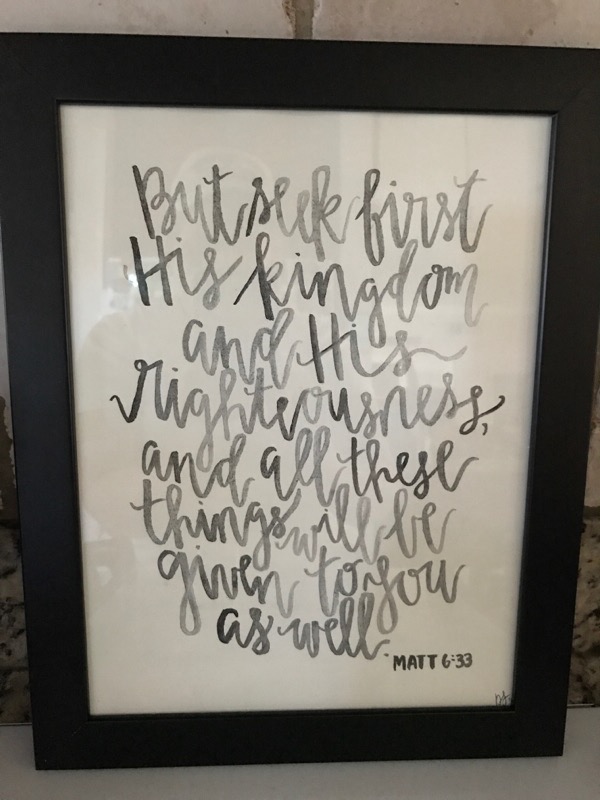 But seek first
His kingdom
and His
righteousness,
and all these
things will be
given to you
as well.
MATT 6:33